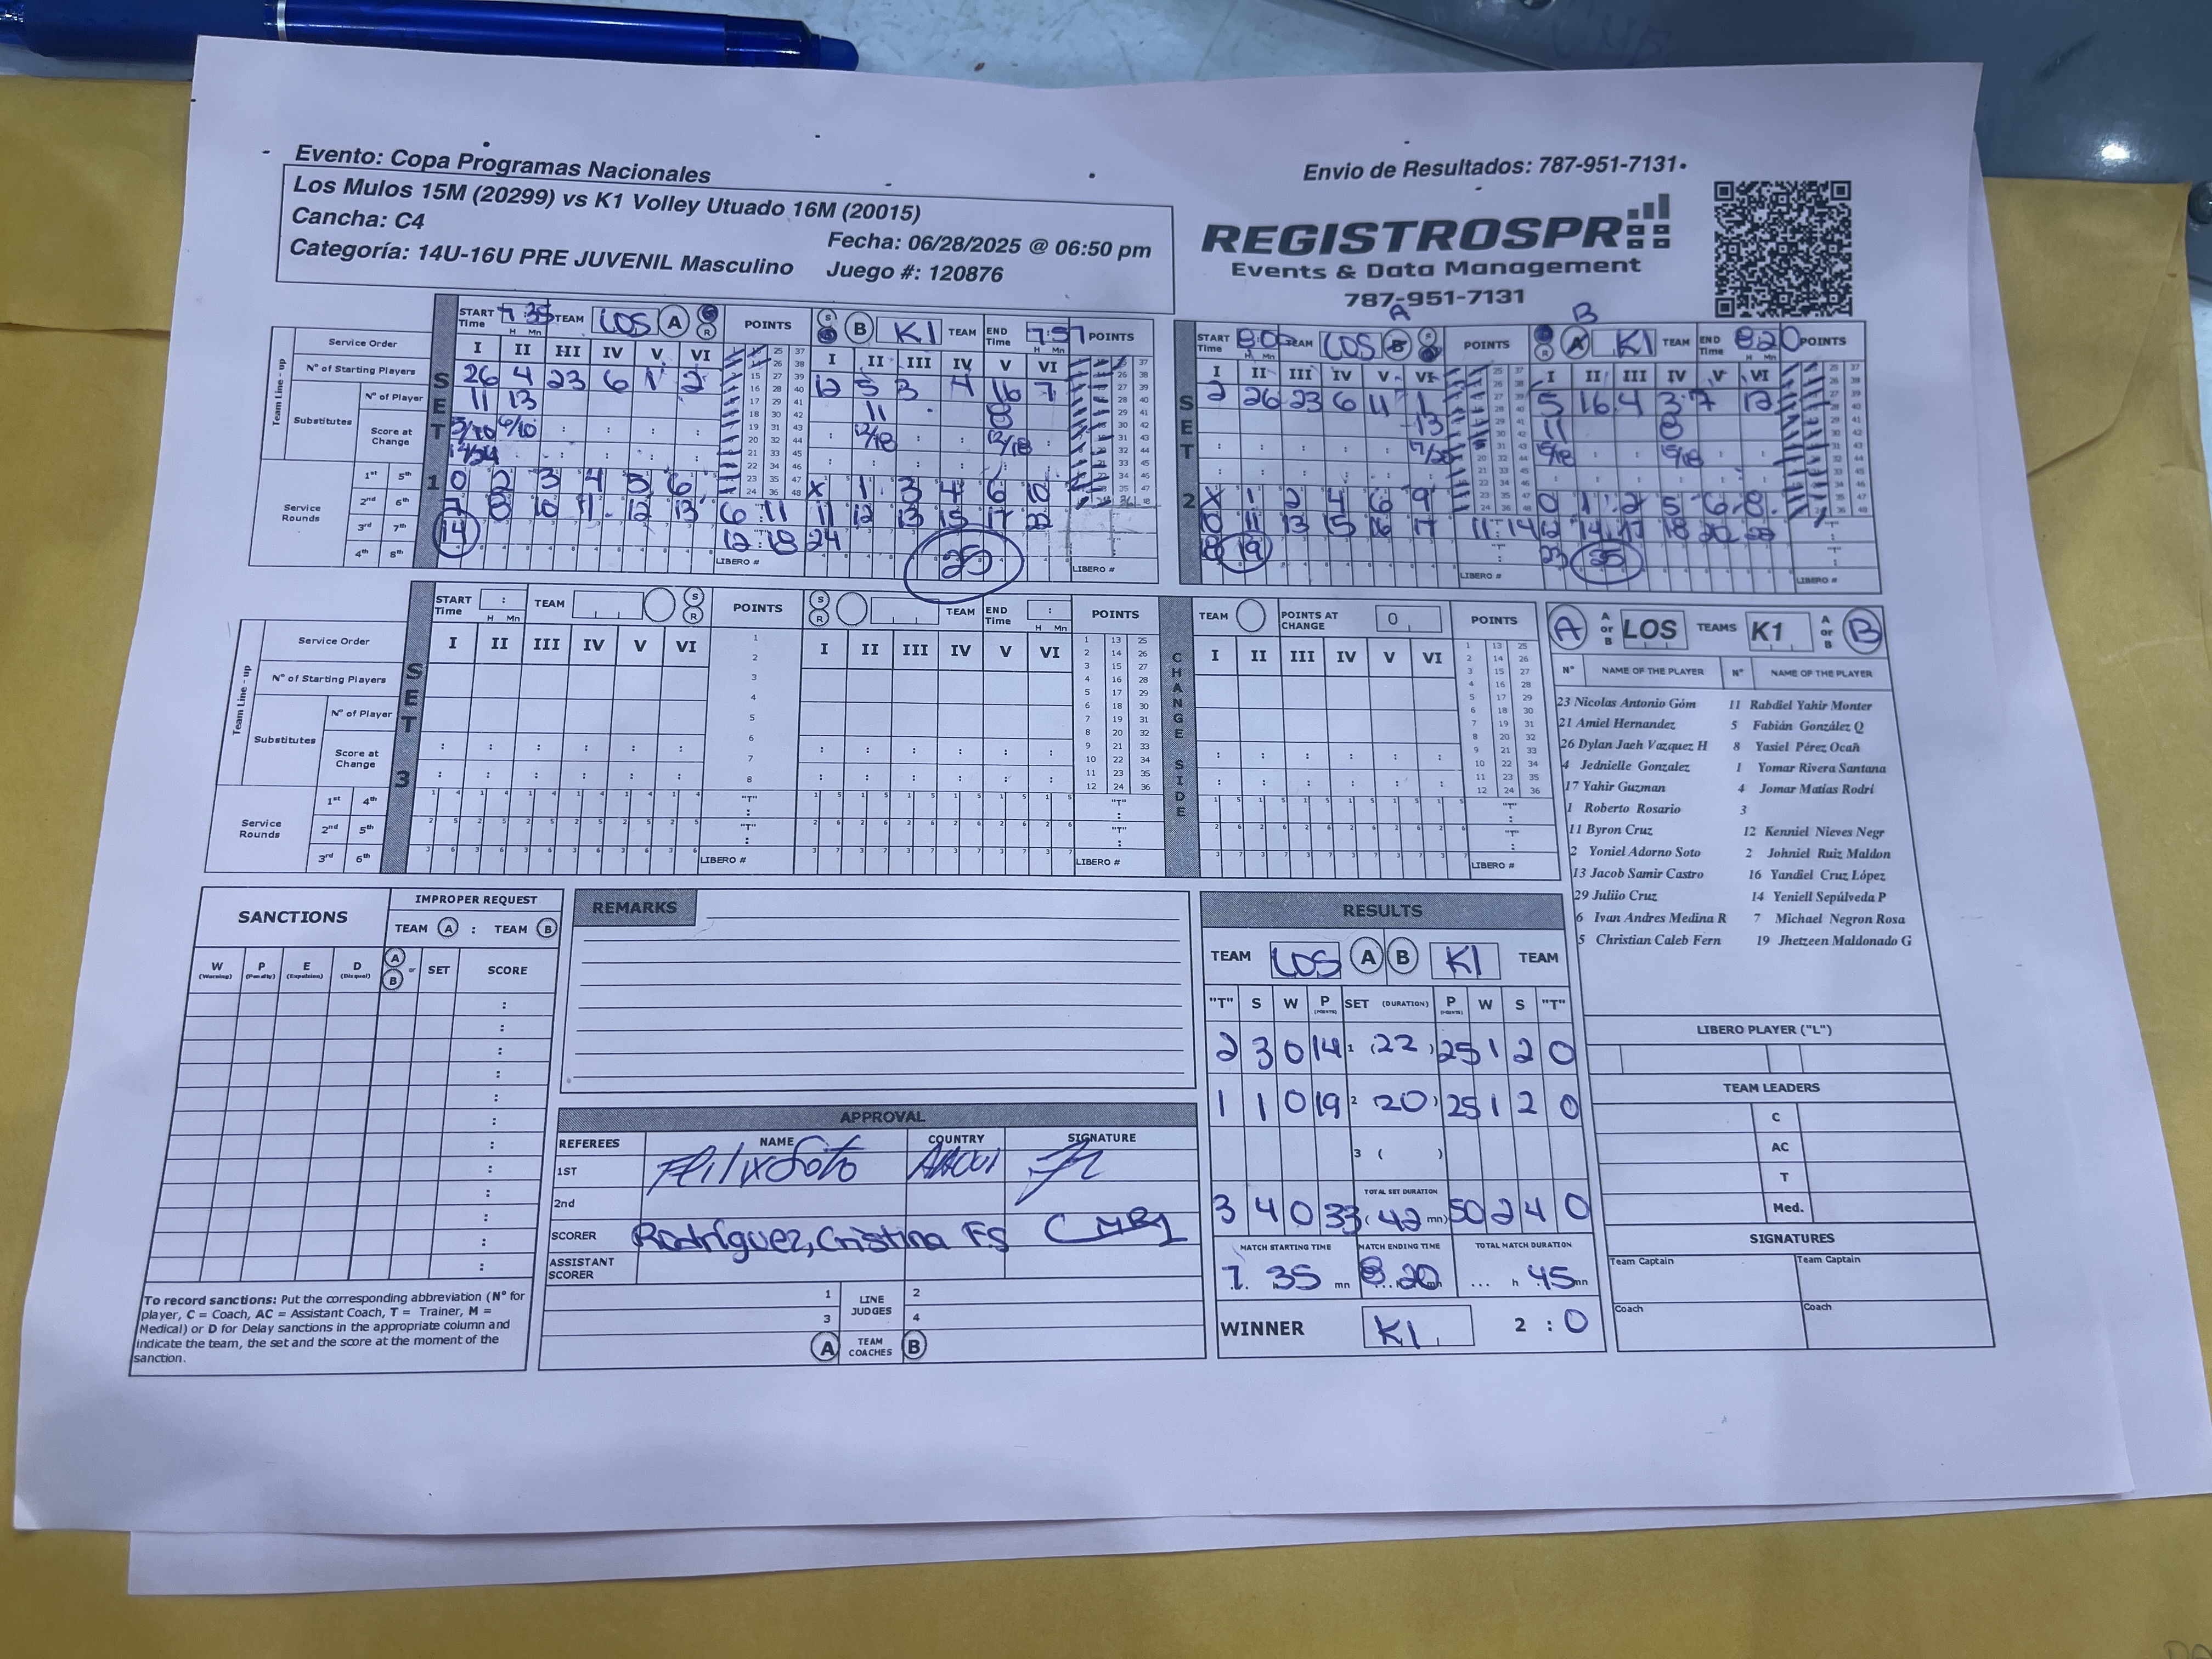 Evento: Copa Programas Nacionales
Los Mulos 15M (20299) vs K1 Volley Utuado 16M (20015)
Cancha: C4
Fecha: 06/28/2025 @ 06:50 pm
Categoría: 14U-16U PRE JUVENIL Masculino
Juego #: 120876
Envio de Resultados: 787-951-7131
REGISTROSPR
Events & Data Management
787-951-7131
START Time 7:35 TEAM LOS A S R POINTS S R B K1 TEAM END Time 7:57 POINTS
Service Order I II III IV V VI I II III IV V VI
Team Line - up
Nº of Starting Players 26 4 23 6 1 2 12 5 3 4 16 7
Substitutes Nº of Player 11 13 11 8
Score at Change 6/10 12/18 12/18
SET 1
Service Rounds
1st 5th 0 2 3 4 5 6 X 1 3 4 6 10
2nd 6th 7 8 10 11 12 13 6:11 11 12 13 15 17 22
3rd 7th 14 12:18 24 25
4th 8th LIBERO # LIBERO #
START Time 8:00 TEAM LOS B POINTS A K1 TEAM END Time 8:20 POINTS
A B
I II III IV V VI I II III IV V VI
2 26 23 6 11 1 5 16 4 3 7 12
13 11 8
SET 2
X 1 2 4 6 9 0 1 2 5 6 8
10 11 13 15 16 17 11:14 12 14 17 18 20 22
18 19 23 25
LIBERO # LIBERO #
START Time : TEAM S R POINTS S R TEAM END Time : POINTS
H Mn H Mn
Service Order I II III IV V VI I II III IV V VI
Team Line - up
Nº of Starting Players
Substitutes Nº of Player
Score at Change
SET 3
Service Rounds
1st 4th
2nd 5th
3rd 6th
"T" "T"
LIBERO # LIBERO #
CHANGE SIDE
TEAM POINTS AT CHANGE 0 POINTS
I II III IV V VI
"T"
"T"
LIBERO #
A A or B LOS TEAMS K1 A or B B
Nº NAME OF THE PLAYER Nº NAME OF THE PLAYER
23 Nicolas Antonio Góm 11 Rabdiel Yahir Monter
21 Amiel Hernandez 5 Fabián González Q
26 Dylan Jaeh Vazquez H 8 Yasiel Pérez Ocañ
4 Jednielle Gonzalez 1 Yomar Rivera Santana
17 Yahir Guzman 4 Jomar Matías Rodrí
1 Roberto Rosario 3
11 Byron Cruz 12 Kenniel Nieves Negr
2 Yoniel Adorno Soto 2 Johniel Ruiz Maldon
13 Jacob Samir Castro 16 Yandiel Cruz López
29 Juliio Cruz 14 Yeniell Sepúlveda P
6 Ivan Andres Medina R 7 Michael Negron Rosa
5 Christian Caleb Fern 19 Jhetzeen Maldonado G
LIBERO PLAYER ("L")
TEAM LEADERS
C
AC
T
Med.
SIGNATURES
Team Captain Team Captain
Coach Coach
SANCTIONS
IMPROPER REQUEST
TEAM A : TEAM B
W (Warning) P (Penalty) E (Expulsion) D (Disqual) A or B SET SCORE
To record sanctions: Put the corresponding abbreviation (Nº for
player, C = Coach, AC = Assistant Coach, T = Trainer, M =
Medical) or D for Delay sanctions in the appropriate column and
indicate the team, the set and the score at the moment of the
sanction.
REMARKS
APPROVAL
REFEREES NAME COUNTRY SIGNATURE
1ST
2nd
SCORER Rodríguez, Cristina
ASSISTANT SCORER
1 LINE JUDGES 2
3 4
A TEAM COACHES B
RESULTS
TEAM LOS A B K1 TEAM
"T" S W P (POINTS) SET (DURATION) P (POINTS) W S "T"
2 3 0 14 1 (22) 25 1 2 0
1 1 0 19 2 (20) 25 1 2 0
3 ( )
TOTAL SET DURATION
3 4 0 33 (42 mn) 50 2 4 0
MATCH STARTING TIME MATCH ENDING TIME TOTAL MATCH DURATION
7 35 mn 8 20 mn ... h 45 mn
WINNER K1 2 : 0